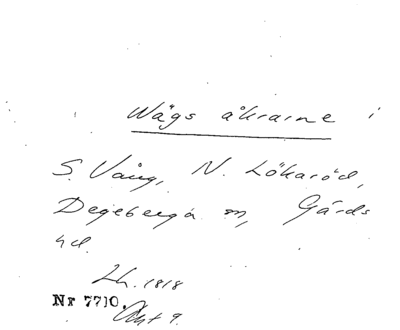 Wägs åkrarne i
S. Vång, N. Lökaröd,
Degeberga sn, Gärds
hd.
Lh. 1818
Nr 7710. Akt 9.